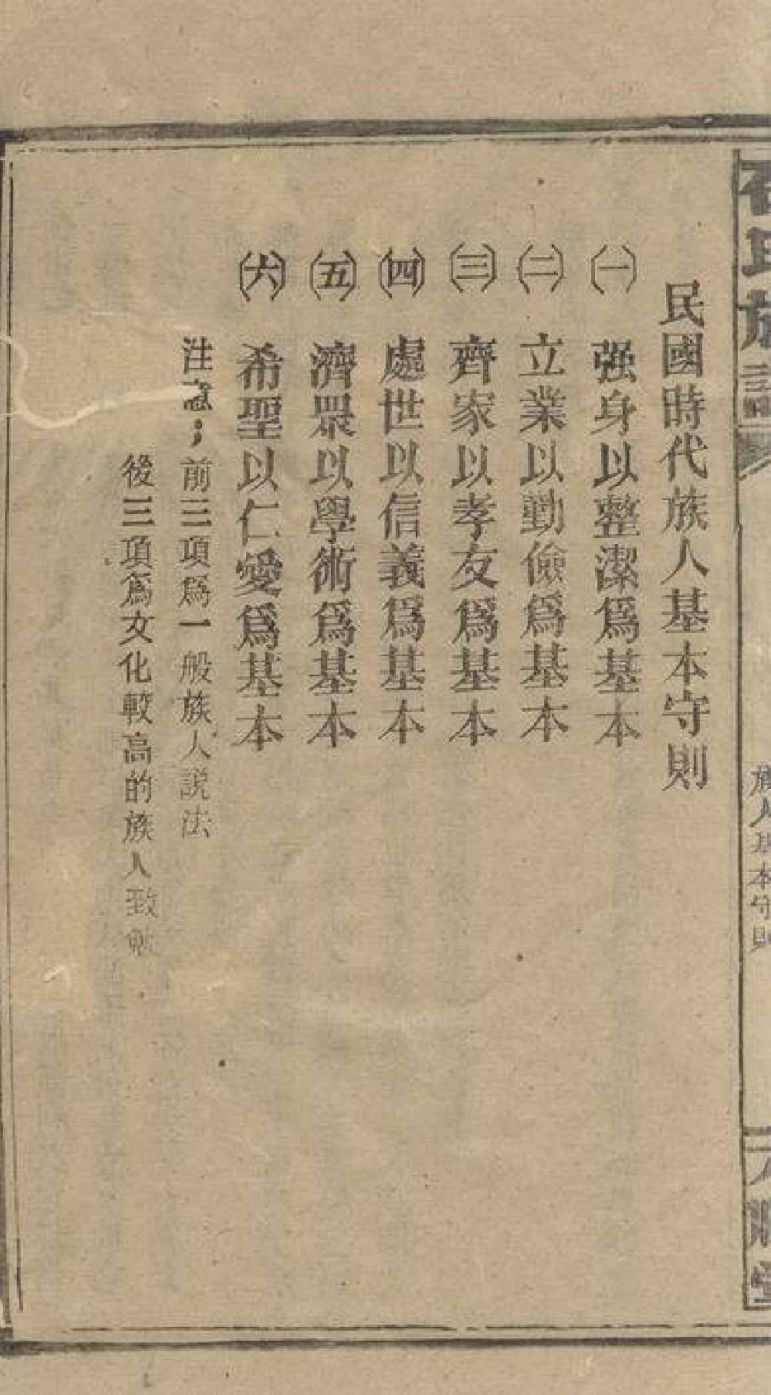 民國時代族人基本守則
㈠ 强身以整潔爲基本
㈡ 立業以勤儉爲基本
㈢ 齊家以孝友爲基本
㈣ 處世以信義爲基本
㈤ 濟眾以學術爲基本
㈥ 希聖以仁愛爲基本
注意；前三項爲一般族人説法
後三項爲文化較高的族人致
氏族譜
族人基本守則